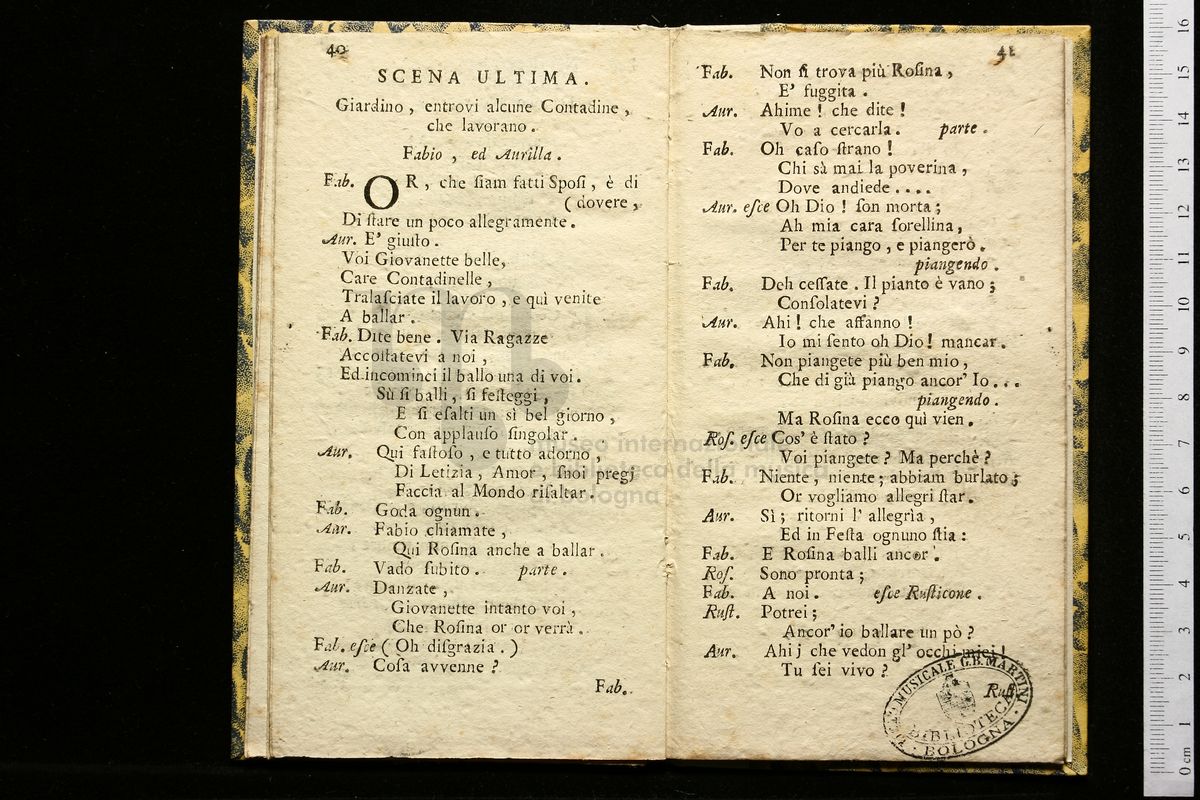 40
SCENA ULTIMA.
Giardino, entrovi alcune Contadine,
che lavorano.
Fabio, ed Aurilla.
Fab. OR, che ſiam fatti Spoſi, è di
(dovere,
Di ſtare un poco allegramente.
Aur. E' giuſto.
Voi Giovanette belle,
Care Contadinelle,
Tralaſciate il lavoro, e quì venite
A ballar.
Fab. Dite bene. Via Ragazze
Accoſtatevi a noi,
Ed incominci il ballo una di voi.
Sù ſi balli, ſi feſteggi,
E ſi eſalti un sì bel giorno,
Con applauſo ſingolar.
Aur. Qui faſtoſo, e tutto adorno,
Di Letizia, Amor, ſuoi pregj
Faccia al Mondo riſaltar.
Fab. Goda ognun.
Aur. Fabio chiamate,
Qui Roſina anche a ballar.
Fab. Vado ſubito. parte.
Aur. Danzate,
Giovanette intanto voi,
Che Roſina or or verrà.
Fab. eſce (Oh diſgrazia.)
Aur. Coſa avvenne?
Fab.
41
Fab. Non ſi trova più Roſina,
E' fuggita.
Aur. Ahime! che dite!
Vo a cercarla. parte.
Fab. Oh caſo ſtrano!
Chi sà mai la poverina,
Dove andiede....
Aur. eſce Oh Dio! ſon morta;
Ah mia cara ſorellina,
Per te piango, e piangerò.
piangendo.
Fab. Deh ceſſate. Il pianto è vano;
Conſolatevi?
Aur. Ahi! che affanno!
Io mi ſento oh Dio! mancar.
Fab. Non piangete più ben mio,
Che di già piango ancor' Io...
piangendo.
Ma Roſina ecco quì vien.
Roſ. eſce Cos' è ſtato?
Voi piangete? Ma perchè?
Fab. Niente, niente; abbiam burlato;
Or vogliamo allegri ſtar.
Aur. Sì; ritorni l' allegrìa,
Ed in Feſta ognuno ſtia:
Fab. E Roſina balli ancor.
Roſ. Sono pronta;
Fab. A noi. eſce Ruſticone.
Ruſt. Potrei;
Ancor' io ballare un pò?
Aur. Ahi j che vedon gl' occhi miei!
Tu ſei vivo?
Ruſt.
MUSICALE G.B. MARTINI
BIBLIOTECA
BOLOGNA
museo internazionale
e biblioteca della musica
di bologna
0 cm 1 2 3 4 5 6 7 8 9 10 11 12 13 14 15 16